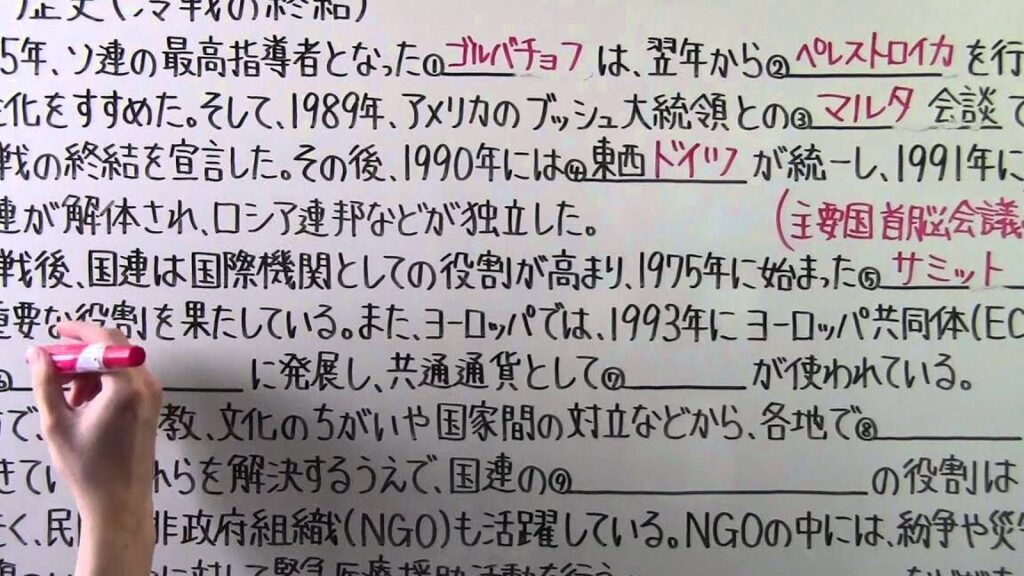 歴史(冷戦の終結)
5年、ソ連の最高指導者となった①ゴルバチョフは、翌年から②ペレストロイカを行
化をすすめた。そして、1989年、アメリカのブッシュ大統領との③マルタ会談で
戦の終結を宣言した。その後、1990年には④東西ドイツが統一し、1991年に
連が解体され、ロシア連邦などが独立した。 (主要国首脳会議
戦後、国連は国際機関としての役割が高まり、1975年に始まった⑤サミット
重要な役割を果たしている。また、ヨーロッパでは、1993年にヨーロッパ共同体(EC
⑥ に発展し、共通通貨として⑦ が使われている。
で、 教、文化のちがいや国家間の対立などから、各地で⑧
きてい れらを解決するうえで、国連の⑨ の役割は
く、民 非政府組織(NGO)も活躍している。NGOの中には、紛争や災
に対して緊急医療援助活動を行う